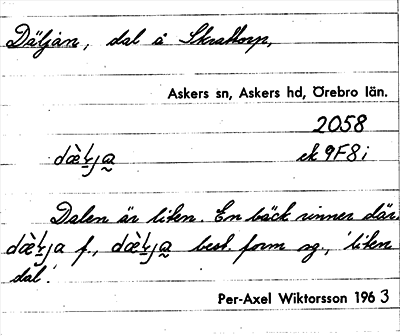 Däljan, dal å Skrattorp,
Askers sn, Askers hd, Örebro län.
2058
dæ̀ɫja̰ ek 9F8i
Dalen är liten. En bäck rinner där.
dæ̀ɫja f., dæ̀ɫja̰ best. form sg., 'liten
dal'.
Per-Axel Wiktorsson 1963